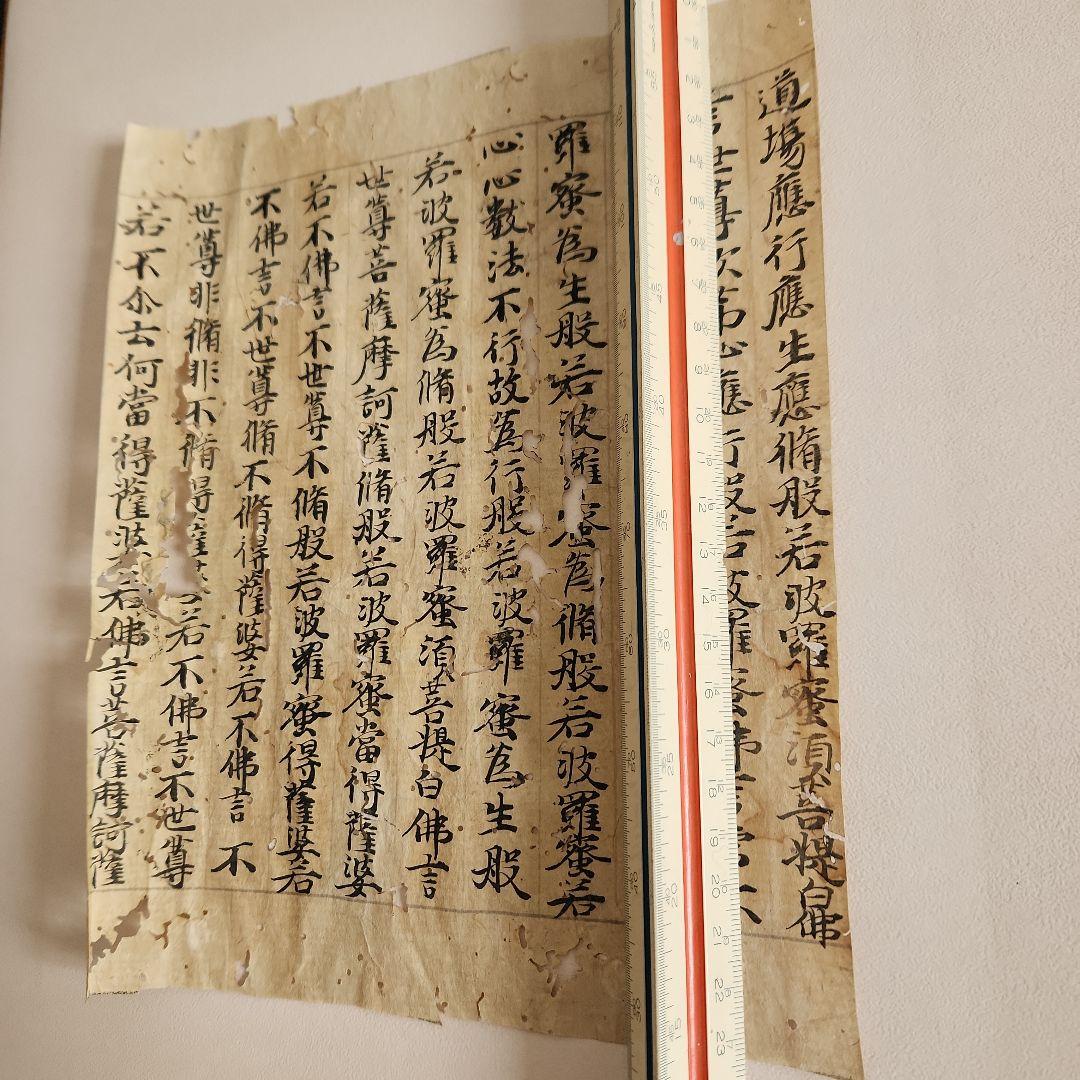 道場應行應生應脩般若波羅蜜須菩提白佛
言世尊次苐心應行般若波羅蜜佛言常不
羅蜜為生般若波羅蜜為脩般若波羅蜜若
心心數法不行故為行般若波羅蜜為生般
若波羅蜜為脩般若波羅蜜須菩提白佛言
世尊菩薩摩訶薩脩般若波羅蜜當得薩婆
若不佛言不世尊不脩般若波羅蜜得薩婆若
不佛言不世尊脩不脩得薩婆若不佛言不
世尊非脩非不脩得薩若不佛言不世尊
若不尒云何當得薩婆若佛言菩薩摩訶薩